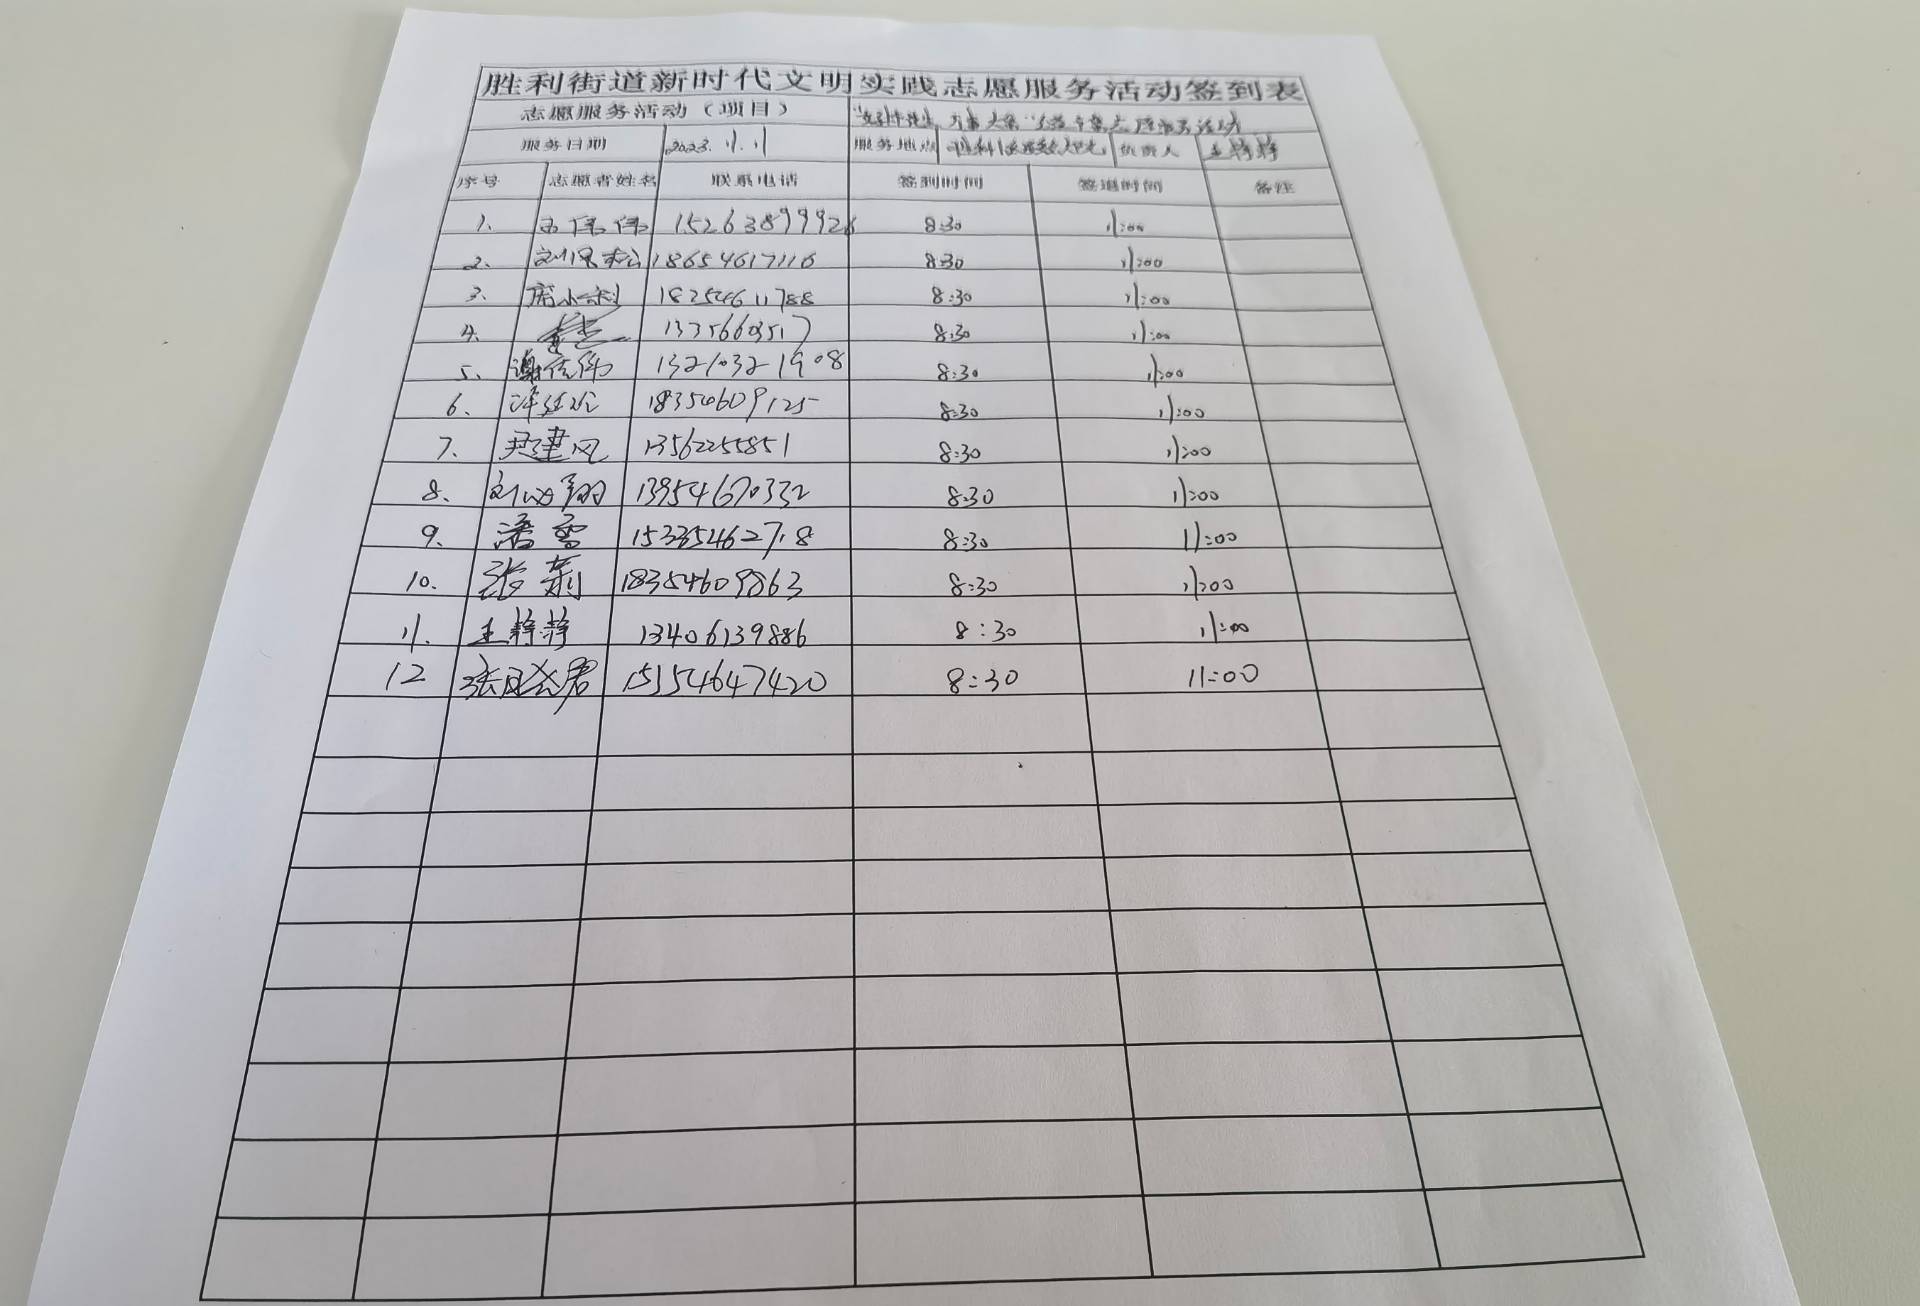 胜利街道新时代文明实践志愿服务活动签到表
志愿服务活动（项目）
服务日期 2023.11.11 服务地点 负责人 王静静
序号 志愿者姓名 联系电话 签到时间 签退时间 备注
1. 王伟伟 15263899926 8:30 11:00
2. 18654617116 8:30 11:00
3. 18254611788 8:30 11:00
4. 13356603517 8:30 11:00
5. 13210321908 8:30 11:00
6. 18350609125 8:30 11:00
7. 尹建风 13562255851 8:30 11:00
8. 13954670332 8:30 11:00
9. 潘雪 15335462718 8:30 11:00
10. 张莉 18354609863 8:30 11:00
11. 王静静 13406139886 8:30 11:00
12 15154647420 8:30 11:00